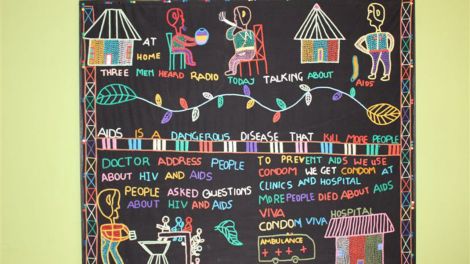 AT
HOME
THREE MEN HEARD RADIO TODAJ TALKING ABOUT AIDS
AIDS IS A DANGEROUS DISEASE THAT KILL MORE PEOPLE
DOCTOR ADDRESS PEOPLE
ABOUT HIV AND AIDS
PEOPLE ASKED QUESTIONS
ABOUT HIV AND AIDS
TO PREVENT AIDS WE USE
CONDOM WE GET CONDOM AT
CLINICS AND HOSPITAL
MORE PEOPLE DIED ABOUT AIDS
VIVA
CONDOM VIVA
HOSPITAL
AMBULANCE